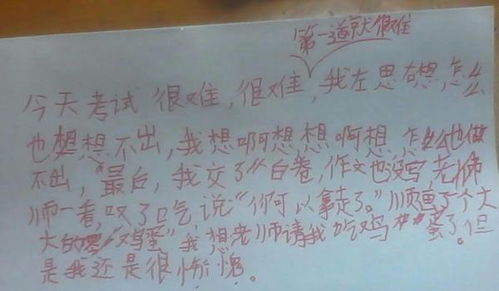 第一道就很难
今天考试很难,很难,我左思右想,怎么
也想想不出,我想啊想,想啊想,怎么也做
不出,最白,我交了白卷,作文也没写老师
师一看,叹了口气说“你可以拿走了。”顺画了个大
大的“鸡蛋”我想老师请我吃鸡蛋了。但
是我还是很惭愧。